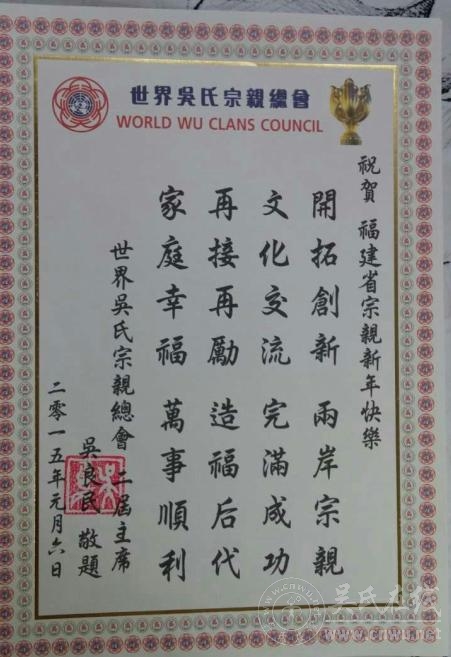 世界吳氏宗親總會
WORLD WU CLANS COUNCIL
祝賀 福建省宗親新年快樂
開拓創新 兩岸宗親
文化交流 完滿成功
再接再勵 造福后代
家庭幸福 萬事順利
世界吳氏宗親總會 二屆主席
吳良民 敬題
二零一五年元月六日
www.cnwu.net